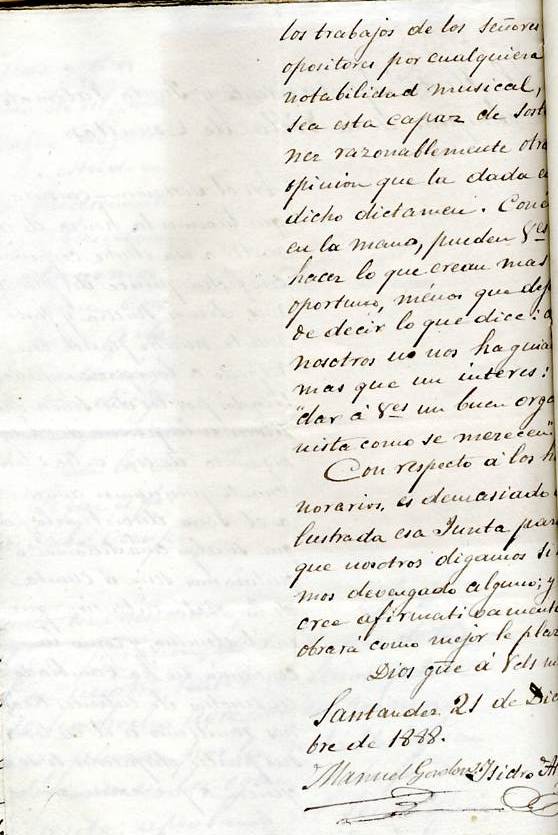 los trabajos de los señores
opositores por cualquiera
notabilidad musical,
sea esta capaz de sost
ner razonablemente otra
opinion que la dada e
dicho dictamen. Con
en la mano, pueden Vˢ
hacer lo que crean mas
oportuno, ménos que dej
de decir lo que dice:
nosotros no nos ha guia
mas que un interes:
"dar á Vˢ un buen orga
nista como se merecen"
Con respecto á los h
norarios, es demasiado
lustrada esa Junta par
que nosotros digamos si
mos devengado alguno; y
cree afirmativamente
obrará como mejor le plaz
Dios gūe á Vds m
Santander 21 de Dic
bre de 1888.
Manuel Isidro